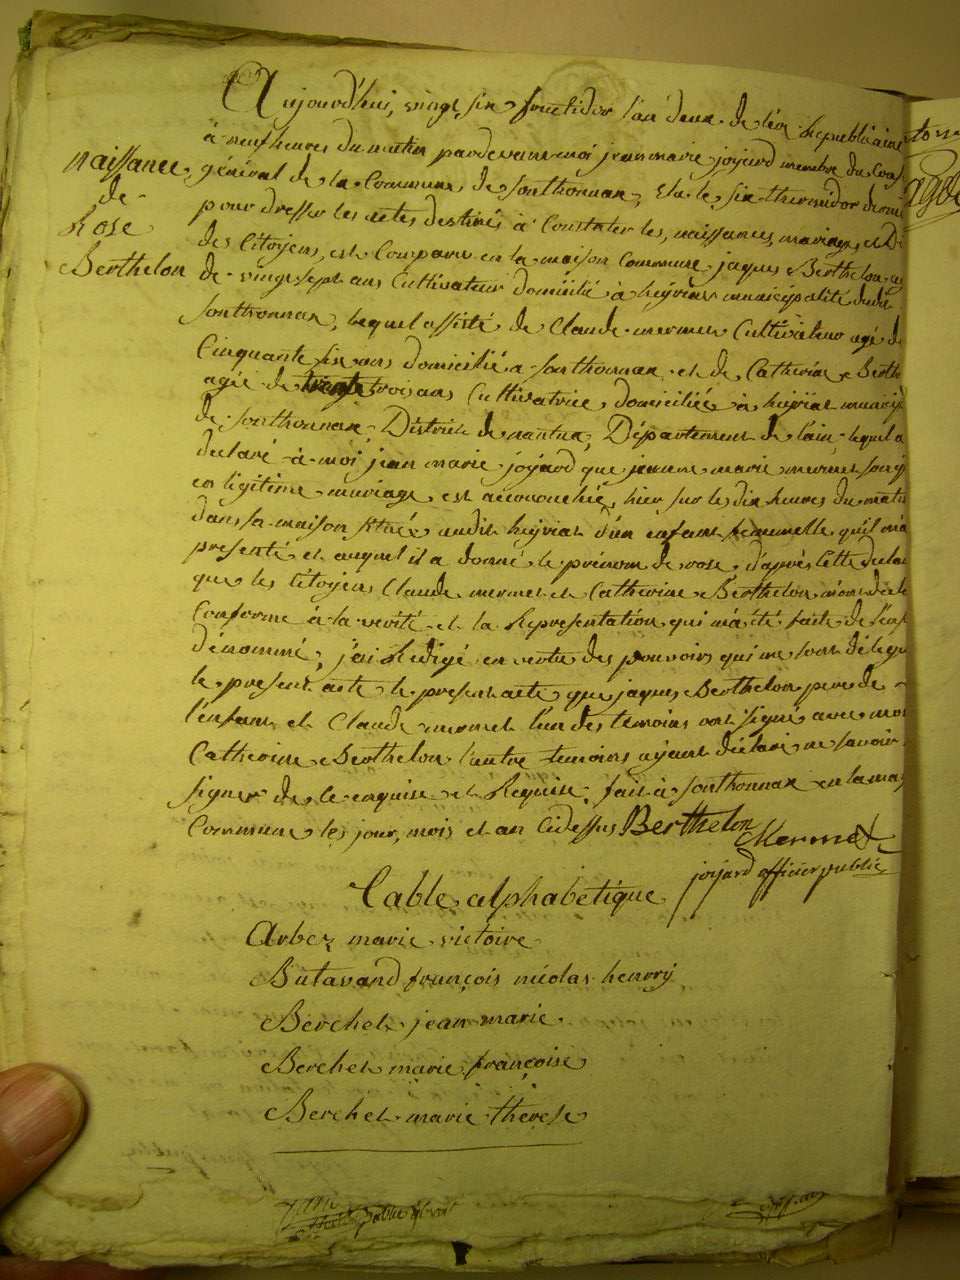 Aujourd'hui, vingt six fructidor l'an deux de l'ère Républicaine
à neuf heures du matin pardevant moi jean marie joyard membre du Cons
général de la Commune de sonthonnax, élu le six thermidor dernie
pour dresser les actes destinés à Constater les, naissances, mariages et Dé
des Citoyens, est Comparu en la maison Commune jaques Berthelon, ag
de vingt sept ans Cultivateur domicilié à heÿriat municipalité dudit
sonthonnax, lequel assisté de Claude mermet Cultivateur agé de
Cinquante six ans domicilié a sonthonnax et de Catherine Berth
agée de trente trois ans Cultivatrice domiciliée à heÿriat municip
de sonthonnax, District de nantua, Département de l'ain, lequel a
declaré à moi jean marie joyard que jeanne marie mermet son ép
en légitime mariage est accouchée, hier sur les dix heures du matin
dans sa maison située audit heÿriat d'un enfant femmelle qu'il m'a
presenté et auquel il a donné le prénom de rose, d'après Cette declar
que les Citoyens Claude mermet et Catherine Berthelon m'ont décla
Conforme à la verité et la Représentation qui m'a été faite de l'enf
dénommé, j'ai Redigé en vertu des pouvoirs qui me sont délégu
le present acte le present acte que jaques Berthelon pere de
l'enfant et Claude mermet l'un des temoins ont signé avec moi
Catherine Berthelon l'autre temoins ayant déclaré ne savoir
signer de ce enquise et Requise, fait à sonthonnax en la mai
Commune les jour, mois et an Cidessus Berthelon
Mermet
joyard officier public
naissance
de
Rose
Berthelon
Table alphabétique
Arbez marie victoire
Butavand françois nicolas henrÿ
Berchet jean marie
Berchet marie françoise
Berchet marie therese